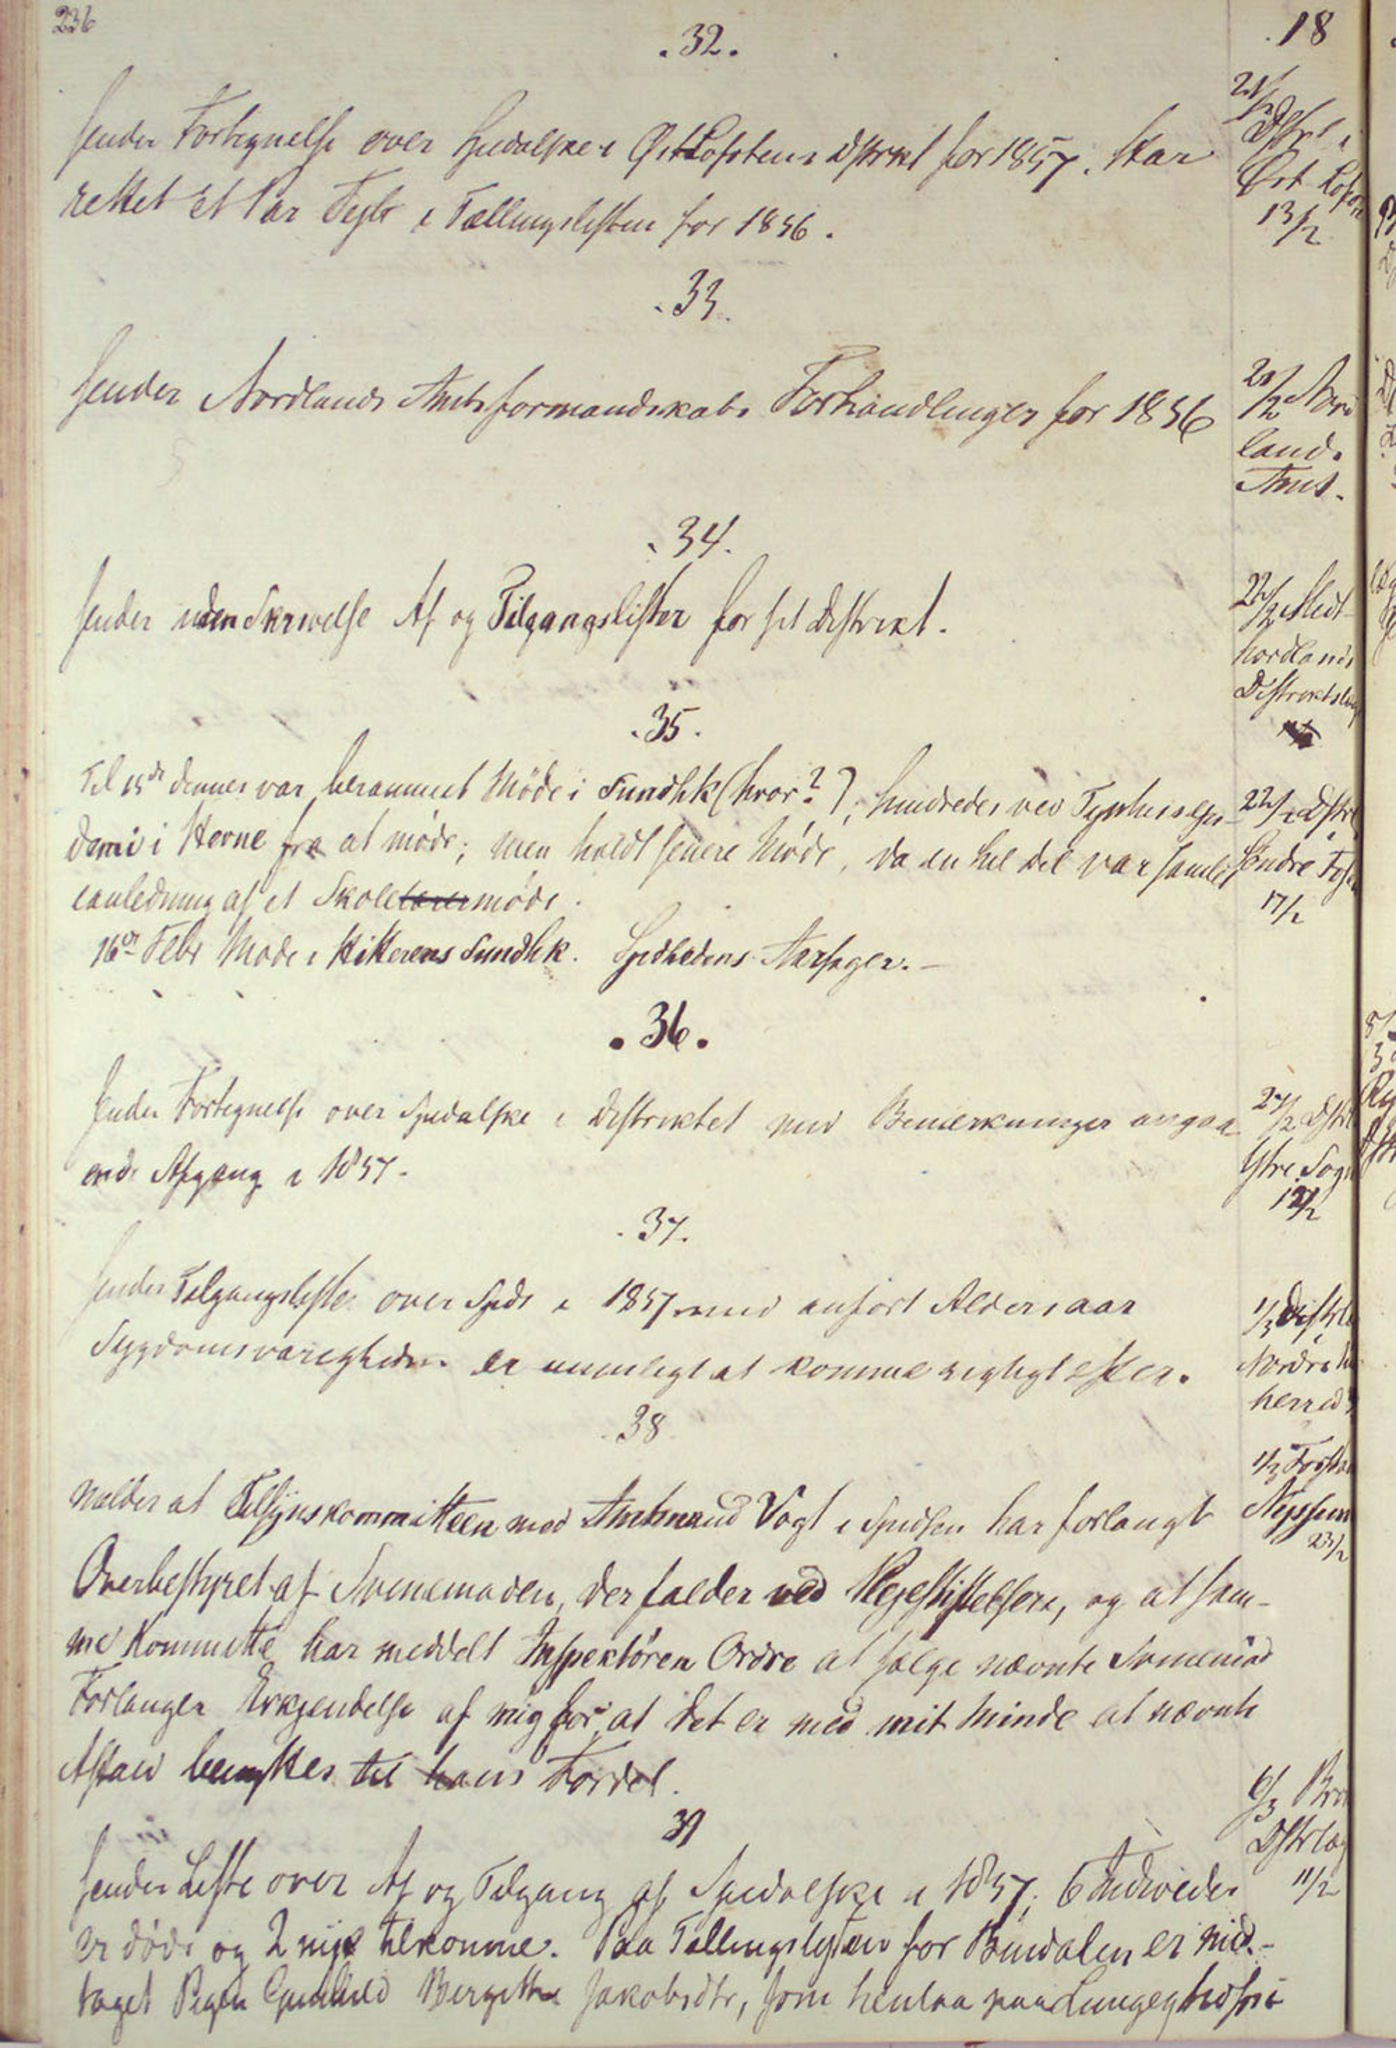 236
.32.
18
Sender Fortegnelse over Spedalske i Øst Lofotens Dstrikt for 1857. Har
rettet et Par Fejl i Tællingslisten for 1856.
21/2 Dstrl i
Øst Lofoten
13/2
.33.
Sender Nordlands Amtsformandskabs Forhandlinger for 1856
21/2 Nord
lands
Amt.
.34.
Sender uden Skrivelse Af og Tilgangslister for sit Distrikt.
22/2 Midt
hordlands
Distriktslæge
.35.
Til 15de dennes var berammet Møde i Sundhk (hvor?), hindredes ved Typhusepi-
demi i Hevne fra at møde; men holdt senere Møde, da en hel Del var samlet
i anledning af et Skolelærermøde.
16de Febr Møde i Hitterens Sundhk. Spedhedens Aarsager. —
22/2 Dstrl
Søndre Fosen
17/2
.36.
Sender Fortegnelse over Spedalske i Distriktet med Bemærkninger angaa-
ende Afgang i 1857.
27/2 Dstrl
Ytre Sogn
12/2
.37.
Sender Tilgangsliste over Speds i 1857 med anført Alders aar
Sygdomsvarigheden er umuligt at komme rigtigt efter.
1/3 Distrl
Nordre
herred
38
Melder at Tilsynskommitteen med Amtmand Vogt i Spidsen har forlangt
Overbestyret af Svinemaden, der falder ved Plejestiftelsen, og at sam-
me Kommitte har meddelt Inspektøren Ordre at sælge nævnte Svinemad
Forlanger Erkjendelse af mig for, at det er med mit Minde at nævnte
Affald benyttes til hans Fordel.
1/3 Forst
23/2
39
Sender Liste over Af og Tilgang af Spedalske i 1857; 6 Individer
er døde og 2 nye tilkomne. Paa Tællingslisten for Bindalen er med-
taget Pigen Gunhild Bergitte Jakobsdtr, som henlaa paa Lungeghospi-
6/3
Dstrlæg
11/2